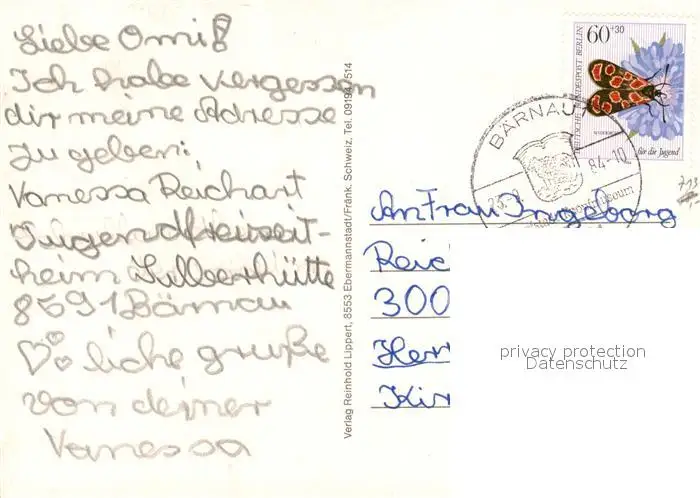 Liebe Omi!
Ich habe vergessen
dir meine Adresse
zu geben:,
Vanessa Reichart
Jugendfreizeit-
heim Silberhütte
8591 Bärnau
♡ liche gruße
von deiner
Vanessa
Verlag Reinhold Lippert, 8553 Ebermannstadt/Fränk. Schweiz, Tel. 09194/514
60+30
DEUTSCHE BUNDESPOST BERLIN
für die Jugend
BÄRNAU
84-10
An Frau Ingeborg
Reic
300
Herr
Kir
privacy protection
Datenschutz